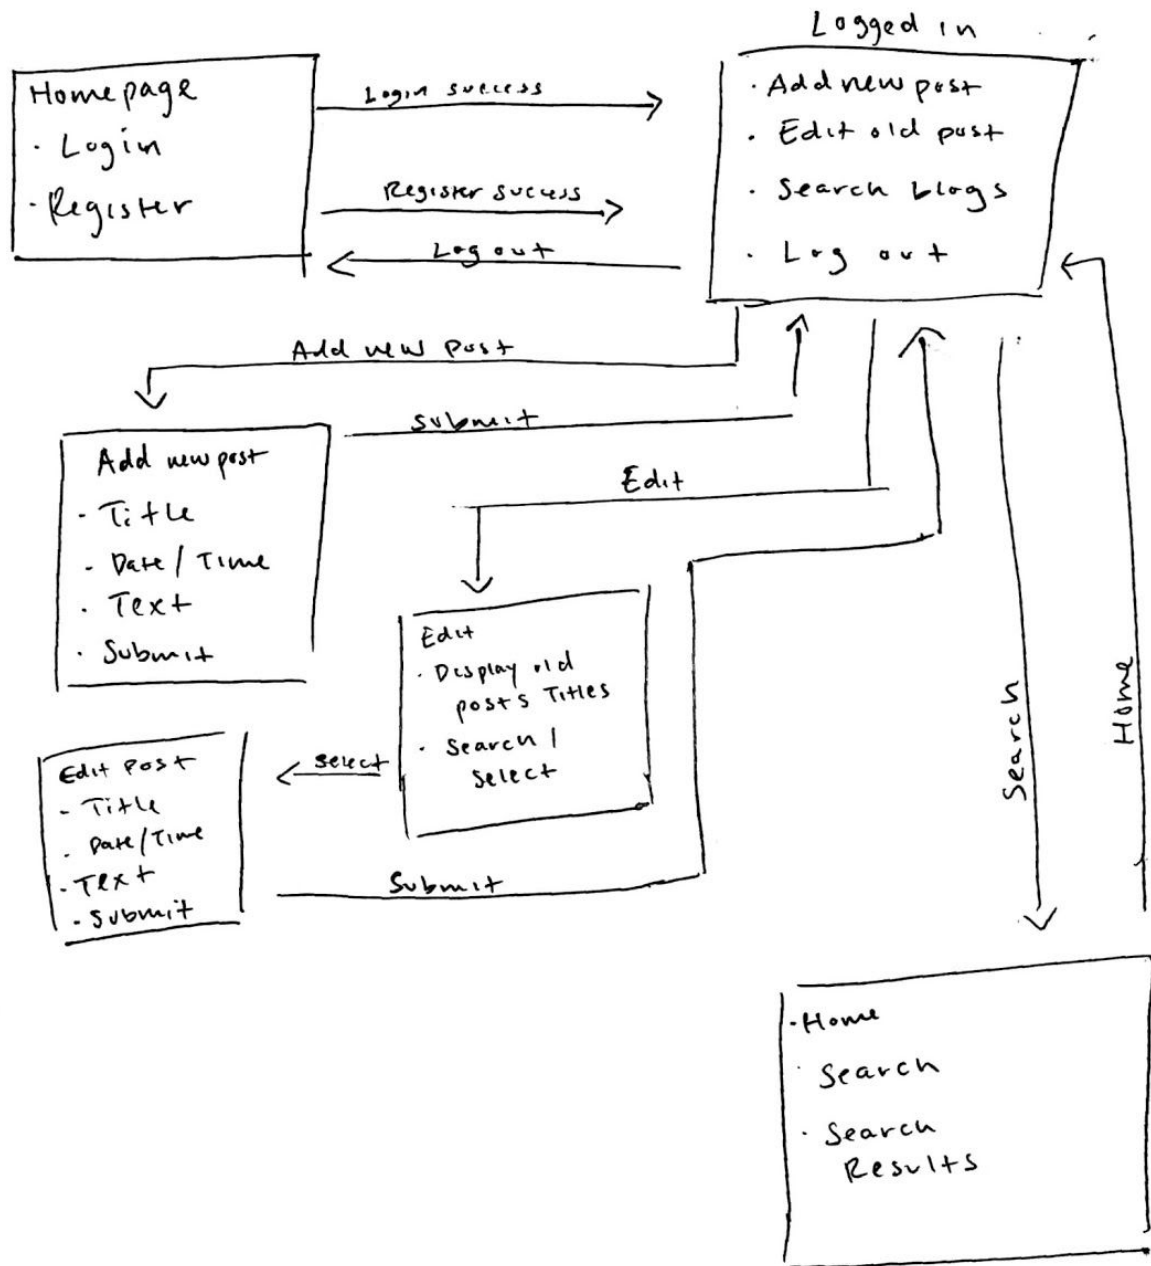 Logged in
Homepage
· Login
· Register
Login success
Register success
Log out
· Add new post
· Edit old post
· Search blogs
· Log out
Add new post
Submit
Add new post
· Title
· Date / Time
· Text
· Submit
Edit
Edit
· Display old
posts Titles
· Search /
Select
Select
Edit Post
· Title
· Date/Time
· Text
· Submit
Submit
Search
Home
· Home
· Search
· Search
Results